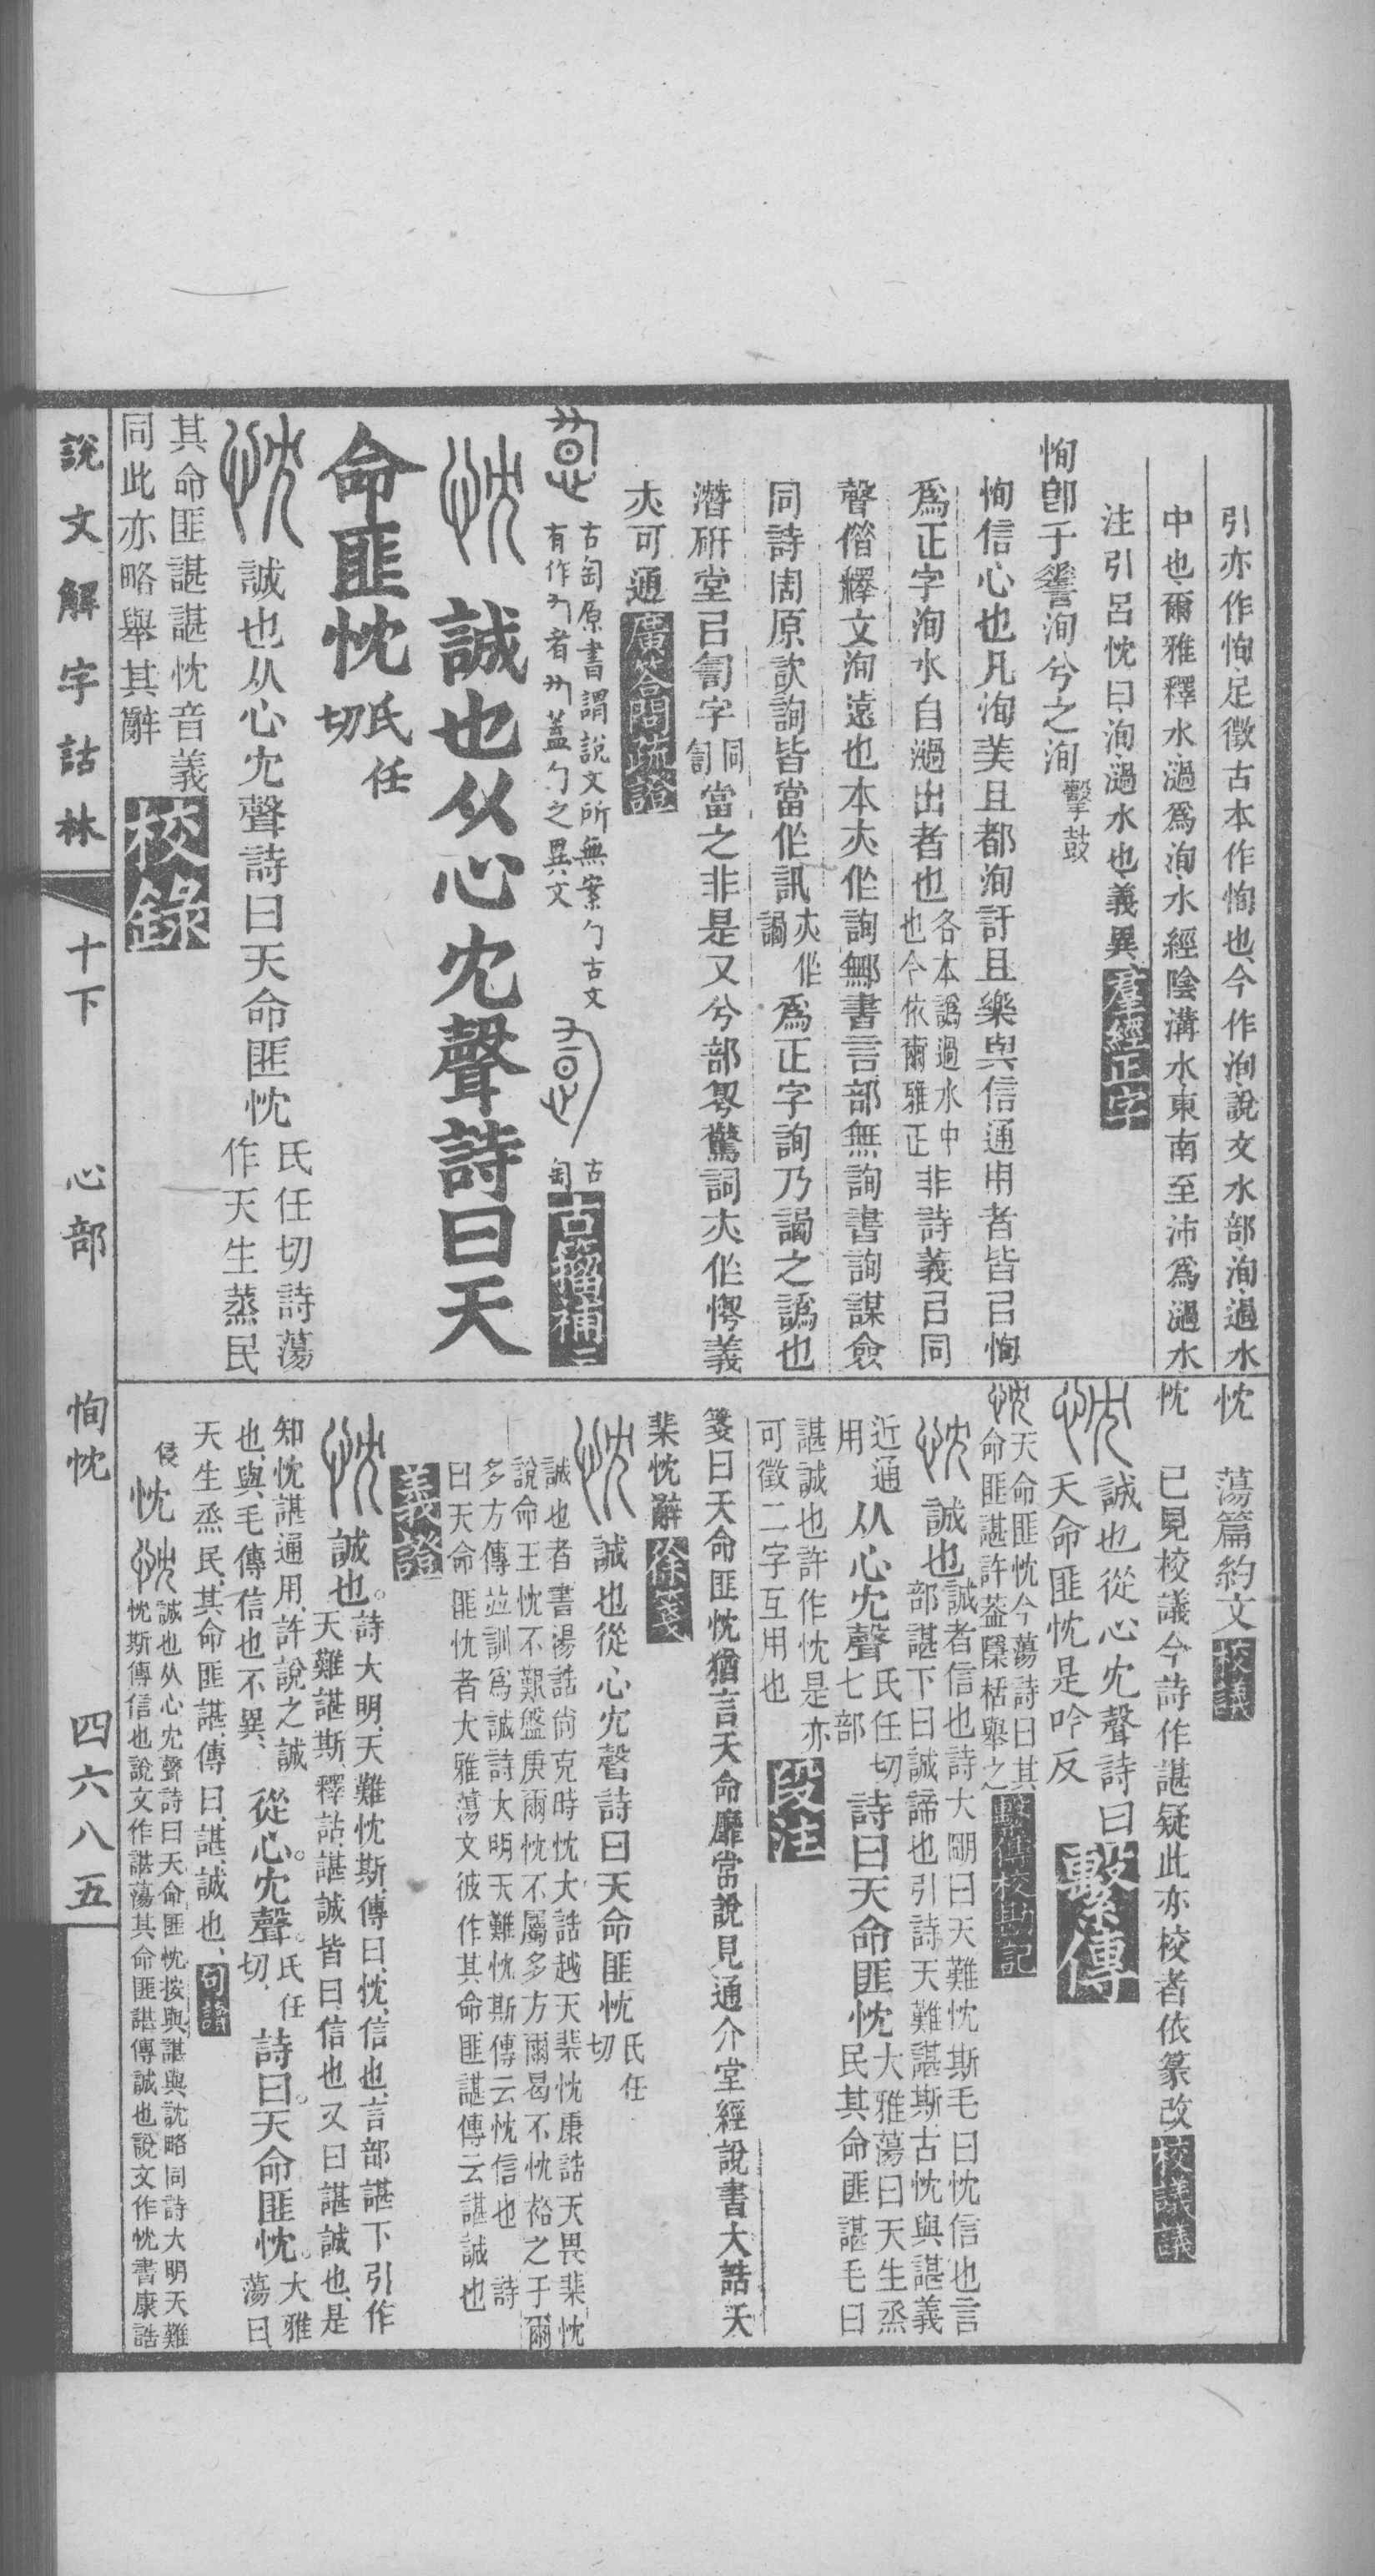 引亦作恂足徵古本作恂也今作洵說文水部洵過水
中也爾雅釋水濄爲洵水經陰溝水東南至沛爲濄水
注引呂忱曰洵濄水也義異羣經正字
恂卽于嗟洵兮之洵擊鼓
恂信心也凡洵美且都洵訏且樂與信通用者皆㠯恂
爲正字洵水自濄出者也各本譌過水中
也今依爾雅正非詩義㠯同
聲偕繹文洵遠也本夾作詢鄦書言部無詢書詢謀僉
同詩周原㰸詢皆當作訊夾作
譋爲正字詢乃謁之譌也
潛硏堂㠯訇字同
訇當之非是又兮部㝁驚詞夾作惸義
夾可通廣答問疏證
古匋原書謂說文所無案勹古文
有作者蓋勹之異文
古
匋古籀補
忱誠也从心冘聲詩曰天
命匪忱氏任
切
忱誠也从心冘聲詩曰天命匪忱氏任切詩蕩
作天生蒸民
其命匪諶諶忱音義
同此亦略舉其辭校錄
說文解字詁林 十下 心部 恂忱 四六八五
忱 蕩篇約文校議
忱 已見校議今詩作諶疑此亦校者依篆改校議議
忱誠也從心冘聲詩曰
天命匪忱是吟反繫傳
忱天命匪忱今蕩詩曰其
命匪諶許蓋櫽栝舉之繫傳校勘記
忱誠也誠者信也詩大明曰天難忱斯毛曰忱信也言
部諶下曰誠諦也引詩天難諶斯古忱與諶義
近通
用从心冘聲氏任切
七部詩曰天命匪忱大雅蕩曰天生烝
民其命匪諶毛曰
諶誠也許作忱是亦
可徵二字互用也段注
箋曰天命匪忱猶言天命靡常說見通介堂經說書大誥天
棐忱辭徐箋
忱誠也從心冘聲詩曰天命匪忱氏任
切
誠也者書湯誥尚克時忱大誥越天棐忱康誥天畏棐忱
說命王忱不艱盤庚爾忱不屬多方爾曷不忱裕之于爾
多方傳竝訓爲誠詩大明天難忱斯傳云忱信也 詩
曰天命匪忱者大雅蕩文彼作其命匪諶傳云諶誠也
義證
忱誠也詩大明天難忱斯傳曰忱信也言部諶下引作
天難諶斯釋詁諶誠皆曰信也又曰諶誠也是
知忱諶通用許說之誠
也與毛傳信也不異從心冘聲氏任
切詩曰天命匪忱大雅
蕩曰
天生烝民其命匪諶傳曰諶誠也句讀
侵
忱忱誠也从心冘聲詩曰天命匪忱按與諶與訦略同詩大明天難
忱斯傳信也說文作諶蕩其命匪諶傳誠也說文作忱書康誥